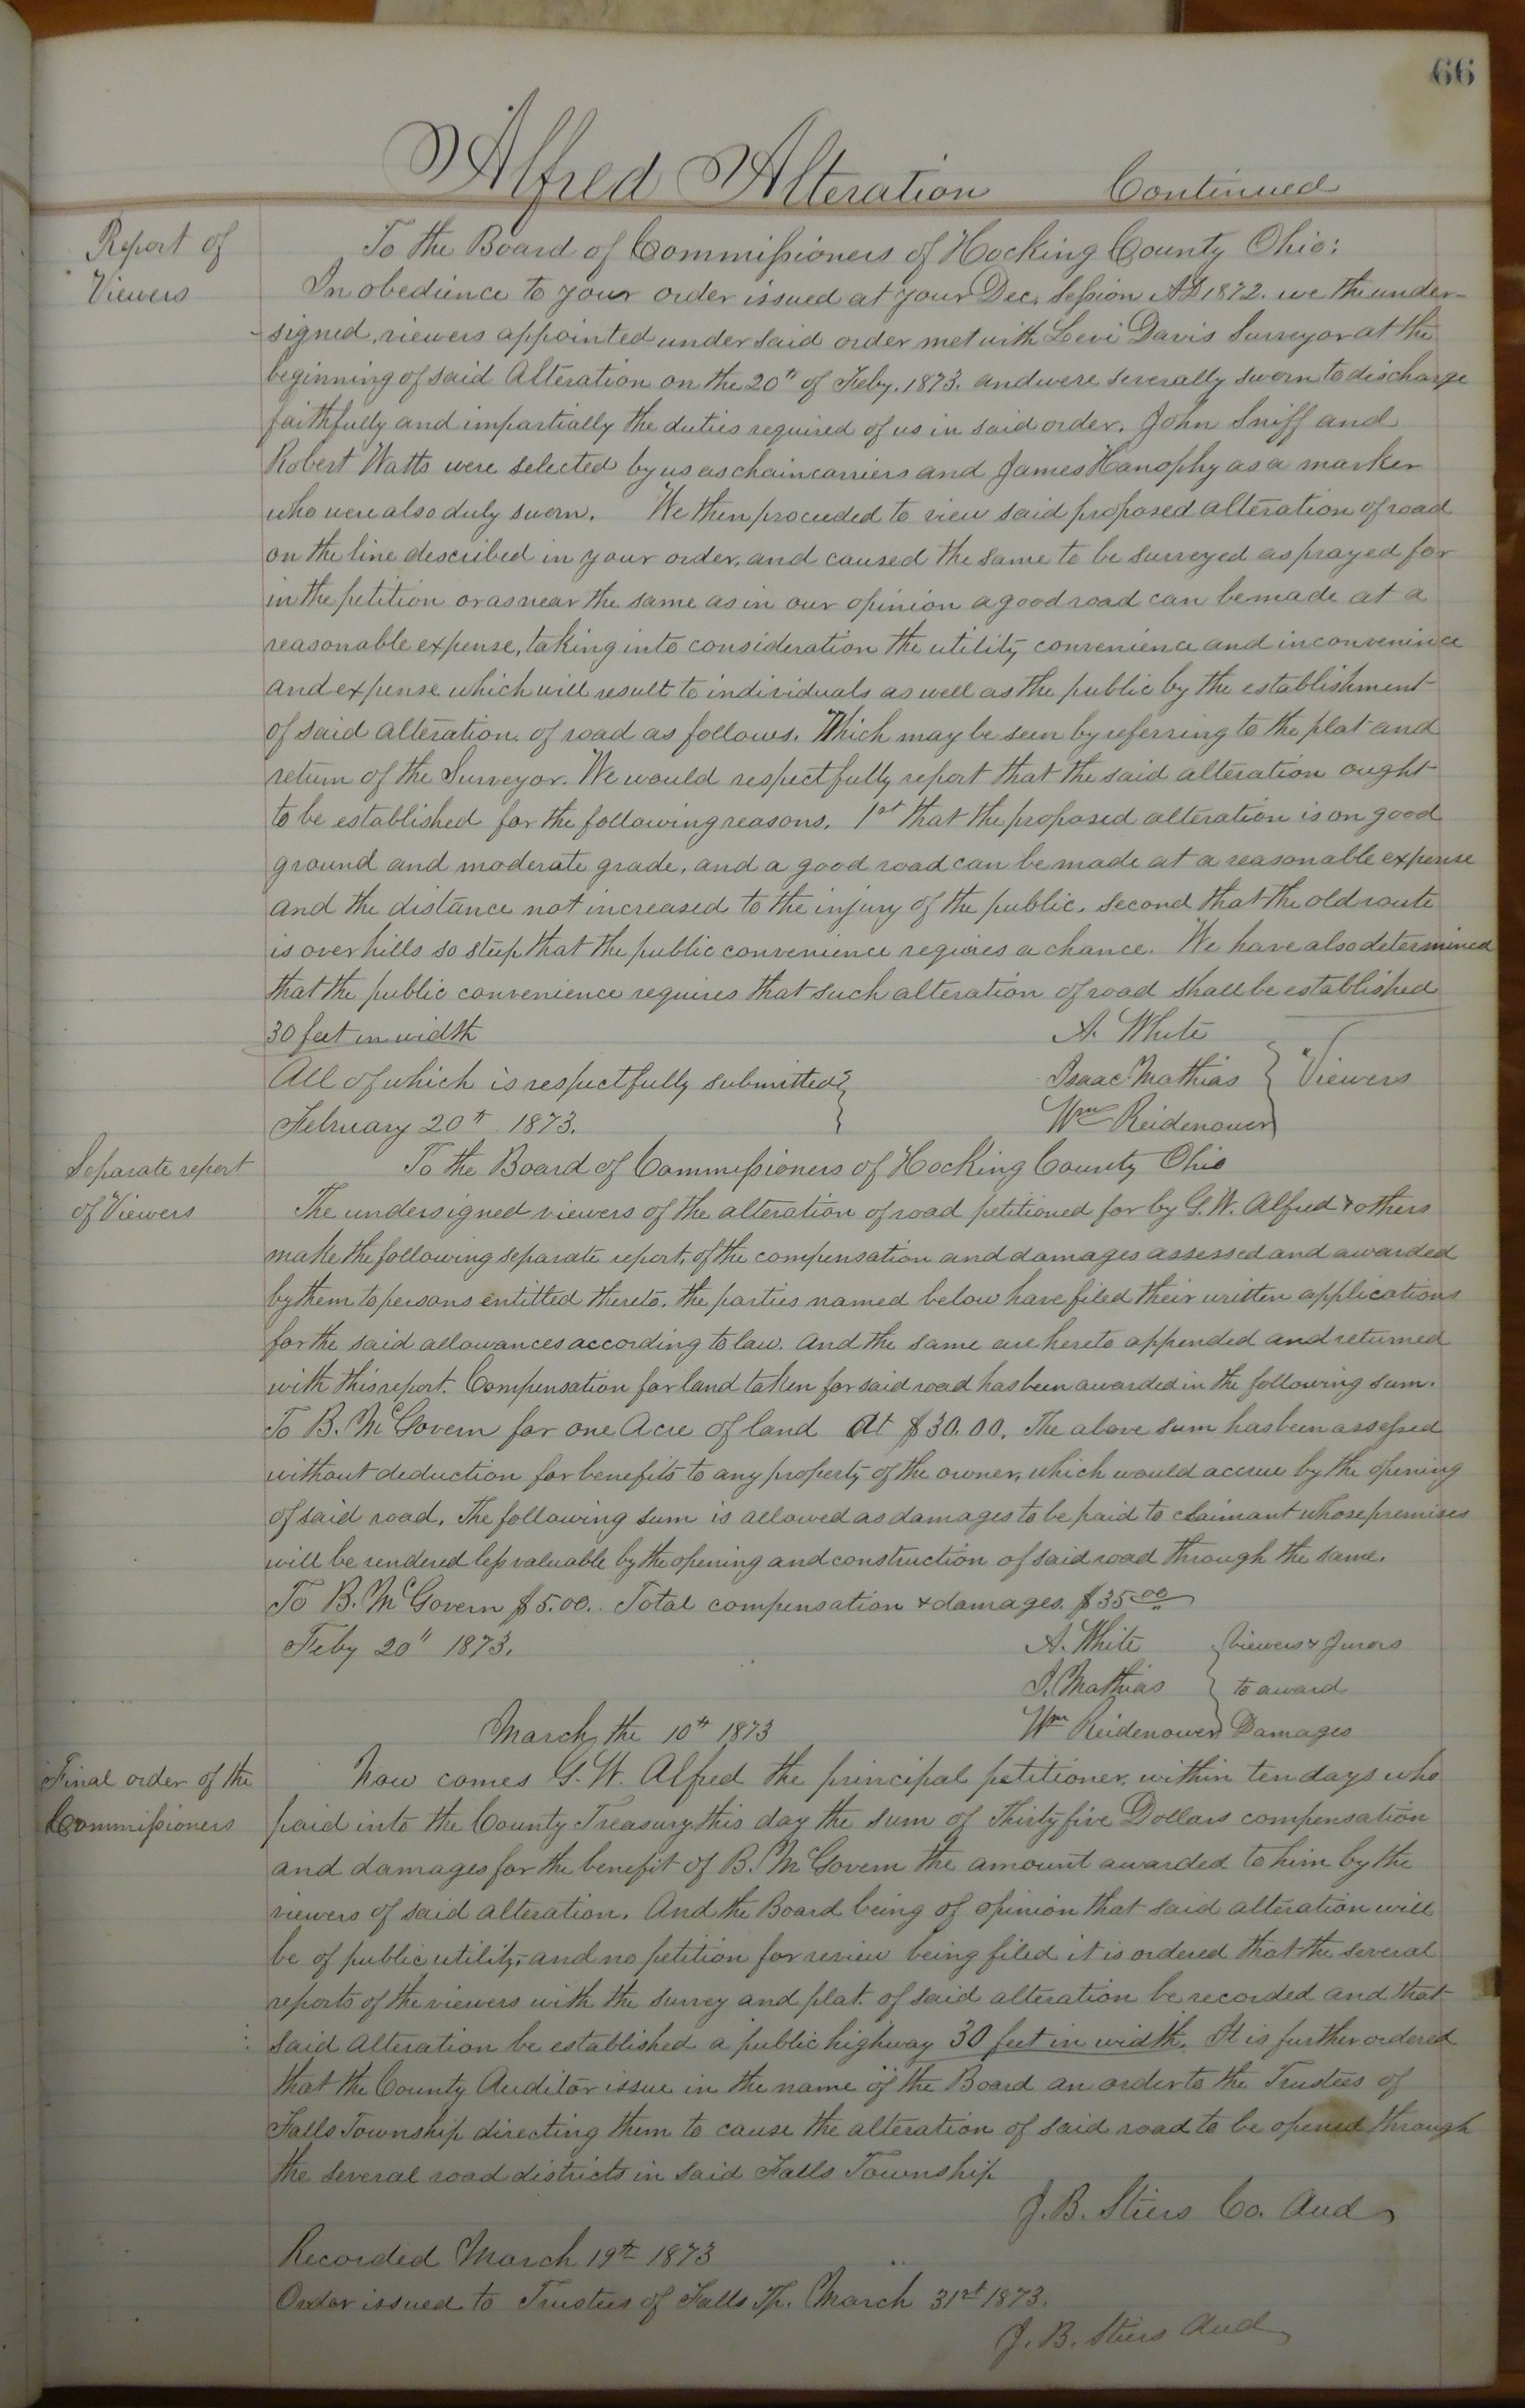 66
Alfred Alteration Continued
Report of
Viewers
To the Board of Commissioners of Hocking County Ohio:
In obedience to your order issued at your Dec. Session AD 1872. we the under-
signed, viewers appointed under said order met with Levi Davis Surveyor at the
beginning of said Alteration on the 20th of Feby. 1873. and were severally sworn to discharge
faithfully and impartially the duties required of us in said order. John Sniff and
Robert Watts were selected by us as chaincarriers and James Hanophy as a marker
who were also duly sworn. We then proceeded to view said proposed alteration of road
on the line described in your order, and caused the same to be surveyed as prayed for
in the petition or as near the same as in our opinion a good road can be made at a
reasonable expense, taking into consideration the utility, convenience and inconvenience
and expense which will result to individuals as well as the public by the establishment
of said alteration of road as follows. Which may be seen by referring to the plat and
return of the Surveyor. We would respectfully report that the said alteration ought
to be established for the following reasons. 1st that the proposed alteration is on good
ground and moderate grade, and a good road can be made at a reasonable expense
and the distance not increased to the injury of the public. second that the old route
is over hills so steep that the public convenience requires a chance. We have also determined
that the public convenience requires that such alteration of road shall be established
30 feet in width
A. White
All of which is respectfully submitted
Isaac Mathias } Viewers
February 20th 1873.
Wm Reidenouer
Separate report
of Viewers
To the Board of Commissioners of Hocking County Ohio
The undersigned viewers of the alteration of road petitioned for by G. W. Alfred & others
make the following separate report, of the compensation and damages assessed and awarded
by them to persons entitted thereto. the parties named below have filed their written applications
for the said allowances according to law. and the same are hereto appended and returned
with this report. Compensation for land taken for said road has been awarded in the following sum.
To B. McGovern for one Acre of land At $30.00. The above sum has been assessed
without deduction for benefits to any property of the owner, which would accrue by the opening
of said road. The following sum is allowed as damages to be paid to claimant whose premises
will be rendered less valuable by the opening and construction of said road through the same.
To B. McGovern $5.00. Total compensation & damages. $35.00
Feby 20th 1873.
A. White } Viewers & Jurors
I. Mathias } to award
Wm Reidenouer } Damages
March the 10th 1873
Final order of the
Commissioners
Now comes G. W. Alfred the principal petitioner, within ten days who
paid into the County Treasury this day the sum of Thirty five Dollars compensation
and damages for the benefit of B. McGovern the amount awarded to him by the
viewers of said alteration. And the Board being of opinion that said alteration will
be of public utility, and no petition for review being filed it is ordered that the several
reports of the viewers with the survey and plat of said alteration be recorded and that
said alteration be established a public highway 30 feet in width. It is further ordered
that the County Auditor issue in the name of the Board an order to the Trustees of
Falls Township directing them to cause the alteration of said road to be opened through
the several road districts in said Falls Township
J. B. Stiers Co. Aud
Recorded March 19th 1873
Order issued to Trustees of Falls Tp. March 31st 1873.
J. B. Stiers Aud